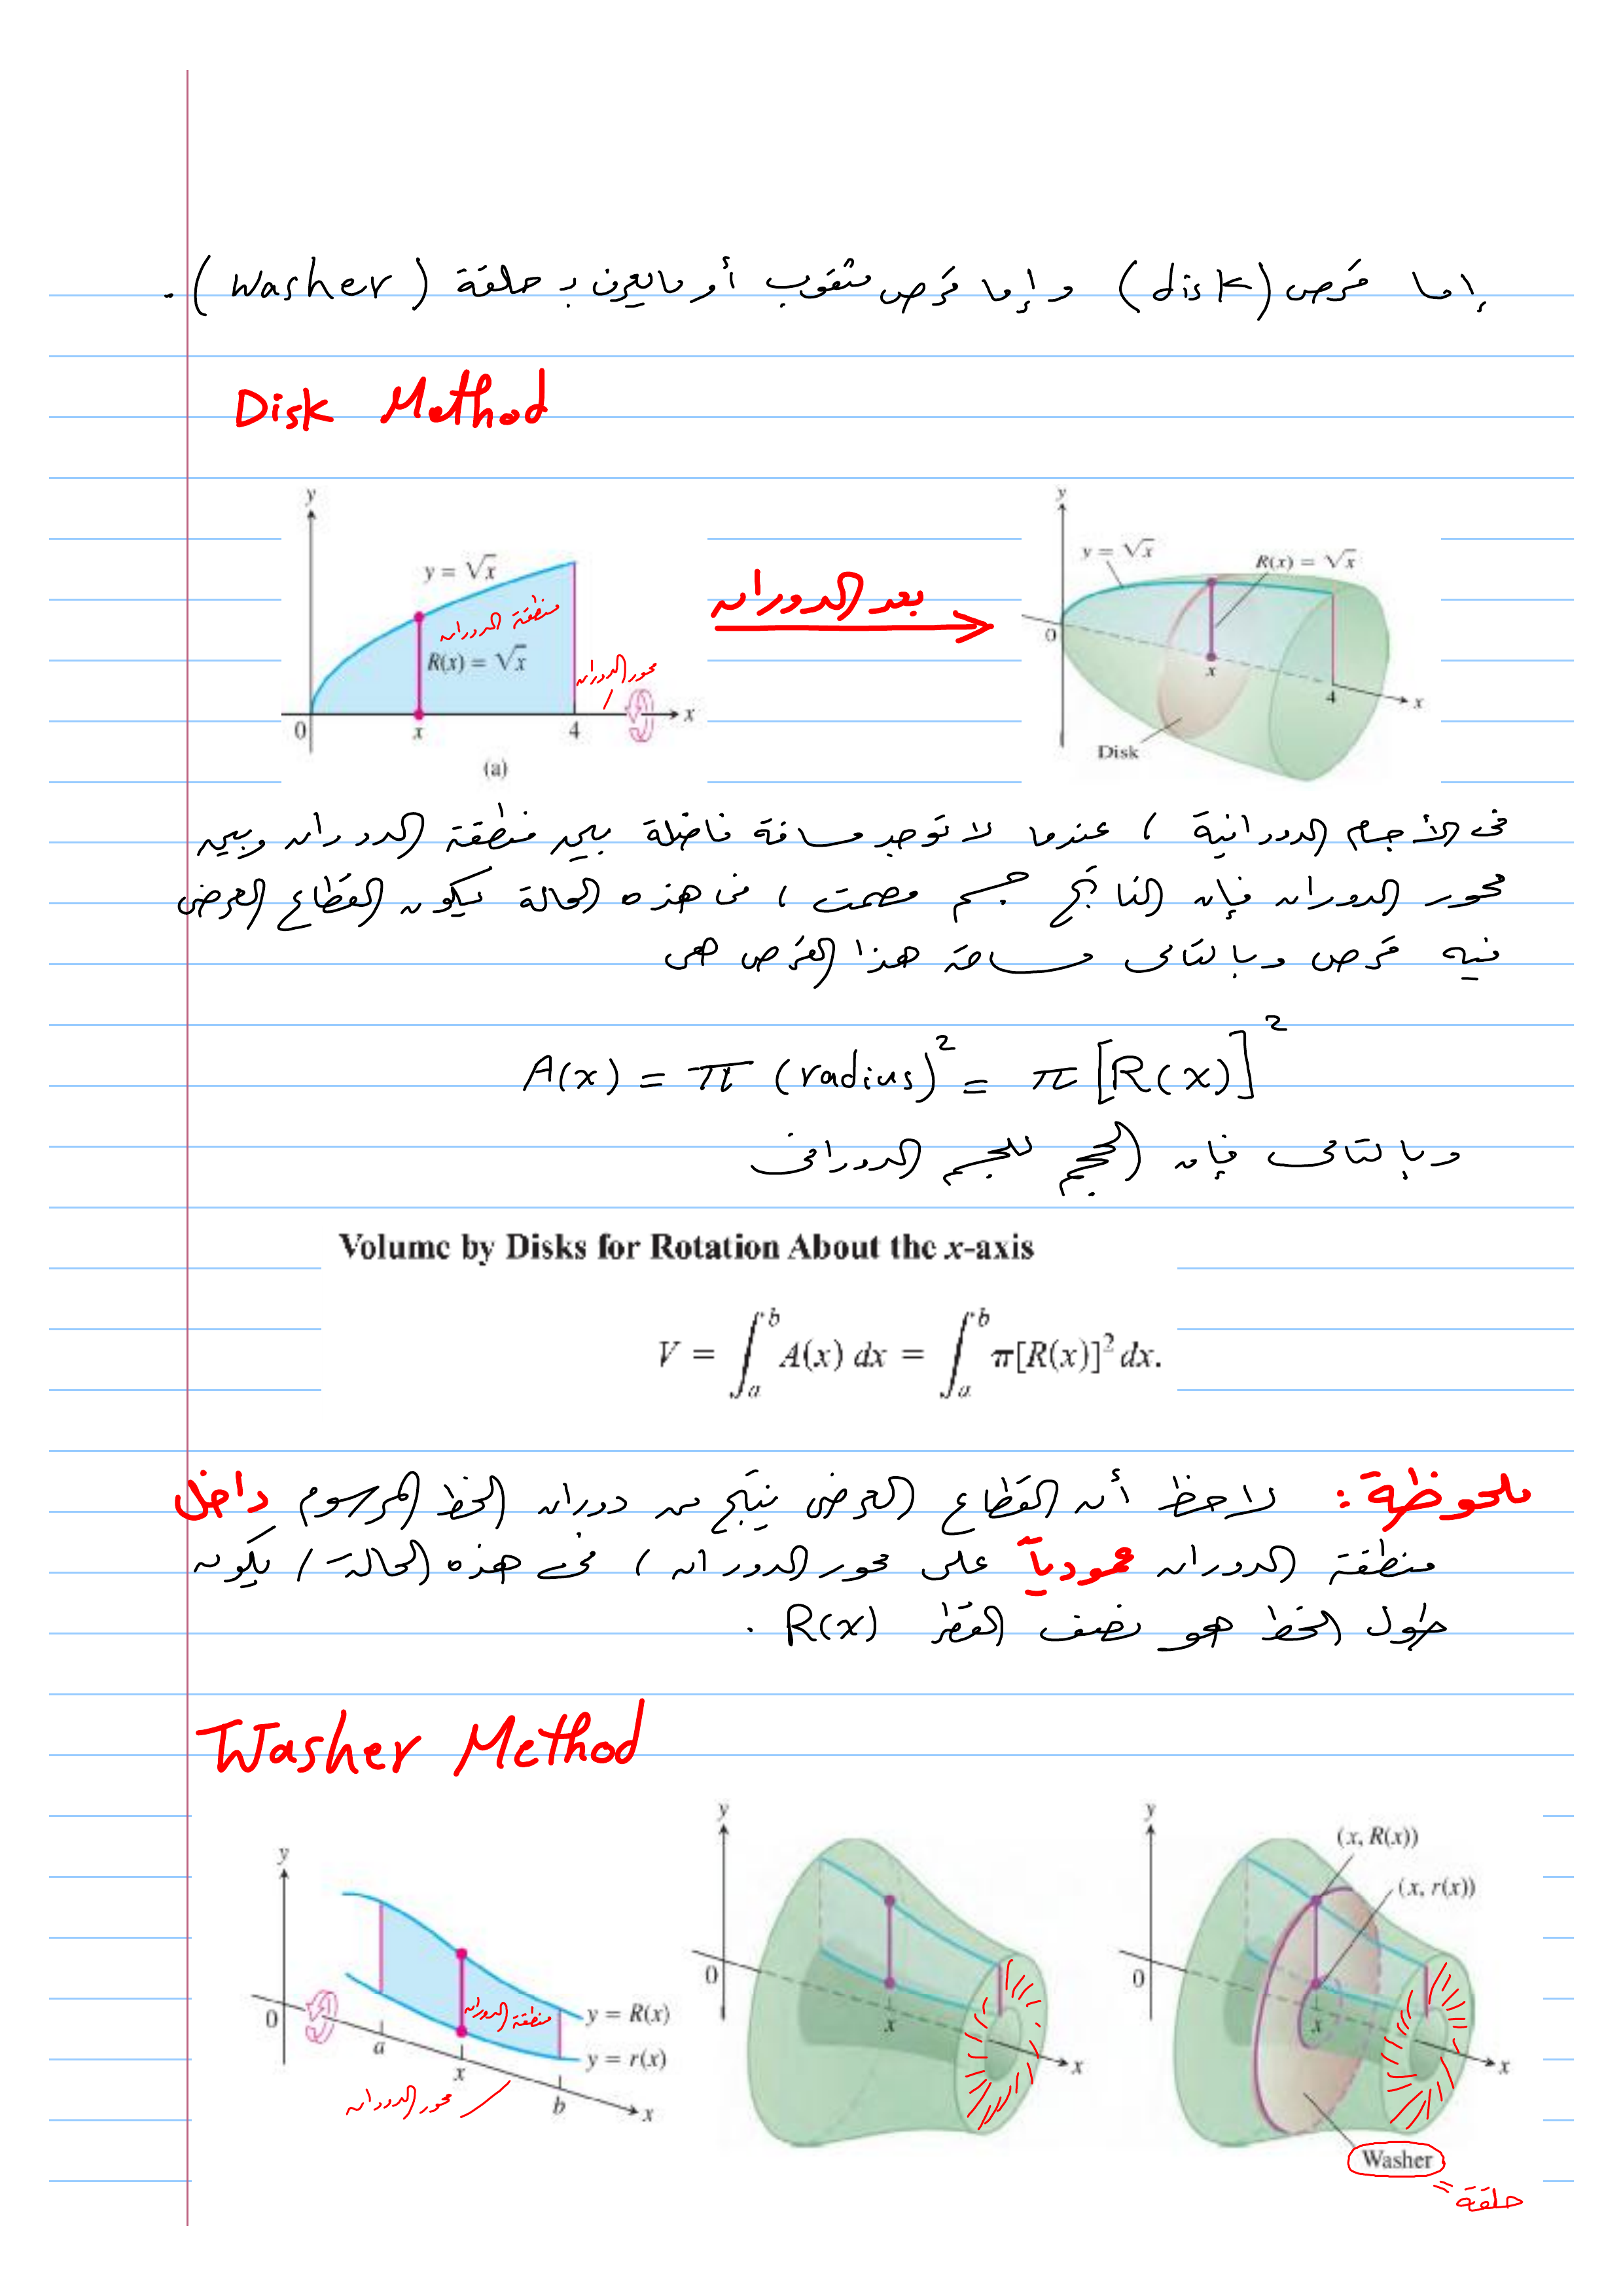 إما قرص (disk) وإما قرص مثقوب أو مايعرف بـ حلقة (washer).
Disk Method
y
y = √x
منطقة الدوران
R(x) = √x
محور الدوران
0
x
4
x
(a)
بعد الدوران
y
y = √x
R(x) = √x
0
x
4
x
Disk
في الأجسام الدورانية ، عندما لا توجد مسافة فاصلة بين منطقة الدوران وبين
محور الدوران فإن الناتج جسم مصمت ، في هذه الحالة يكون القطاع العرضي
فيه قرص وبالتالي مساحة هذا القرص هي
A(x) = π (radius)² = π [R(x)]²
وبالتالي فإن الحجم للجسم الدوراني
Volume by Disks for Rotation About the x-axis
V = ∫ₐᵇ A(x) dx = ∫ₐᵇ π[R(x)]² dx.
ملحوظة: لاحظ أن القطاع العرضي ينتج من دوران الخط المرسوم داخل
منطقة الدوران عمودياً على محور الدوران ، في هذه الحالة ، يكون
طول الخط هو نصف القطر R(x) .
Washer Method
y
0
a
x
b
x
منطقة الدوران
y = R(x)
y = r(x)
محور الدوران
y
0
x
x
y
(x, R(x))
(x, r(x))
0
x
x
Washer
= حلقة